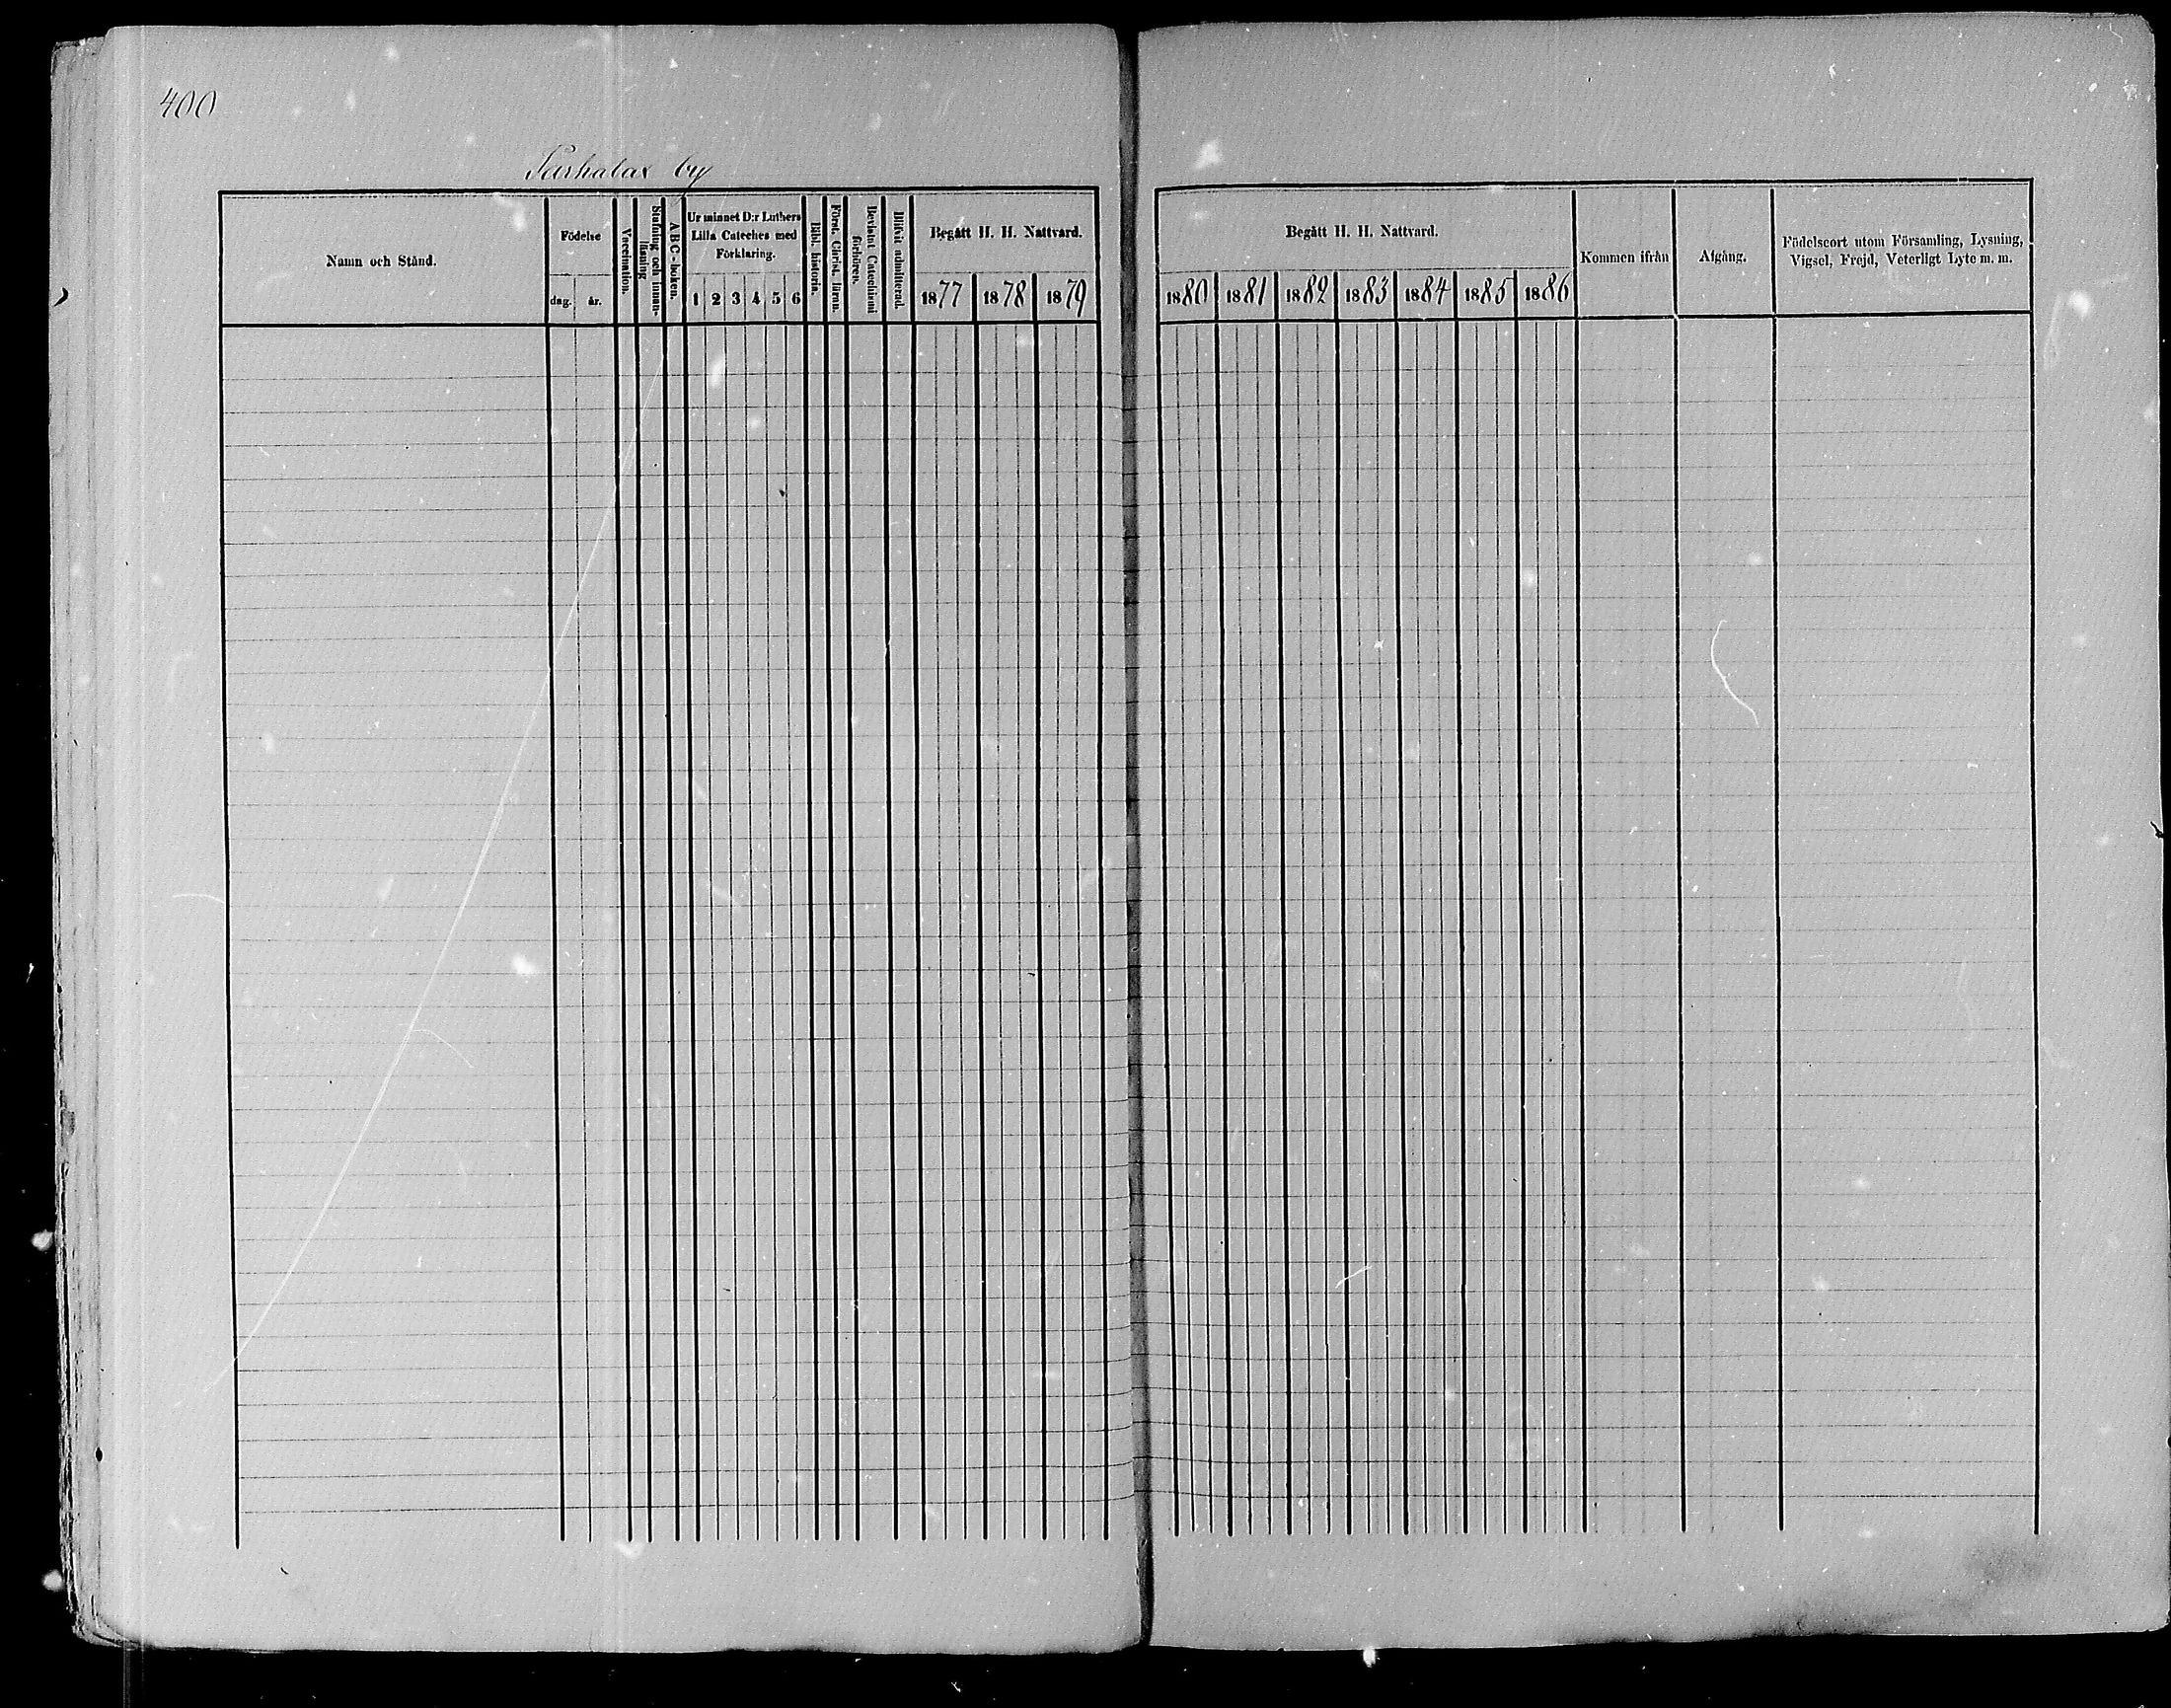 400
Tarhalax by
Namn och Stånd.
Födelse
dag.
år.
Vaccination.
Stafning och innan-
läsning
ABC-boken.
Ur minnet D:r Luthers
Lilla Cateches med
Förklaring.
1 2 3 4 5 6
Bibl. historia.
Först. Christ. lärun.
Bevistat Catechismi
förhören.
Blifvit admitterad.
Begått H. H. Nattvard.
1877 1878 1879
Begått H. H. Nattvard.
1880 1881 1882 1883 1884 1885 1886
Kommen ifrån
Afgång.
Födelseort utom Församling, Lysning,
Vigsel, Frejd, Veterligt Lyte m. m.